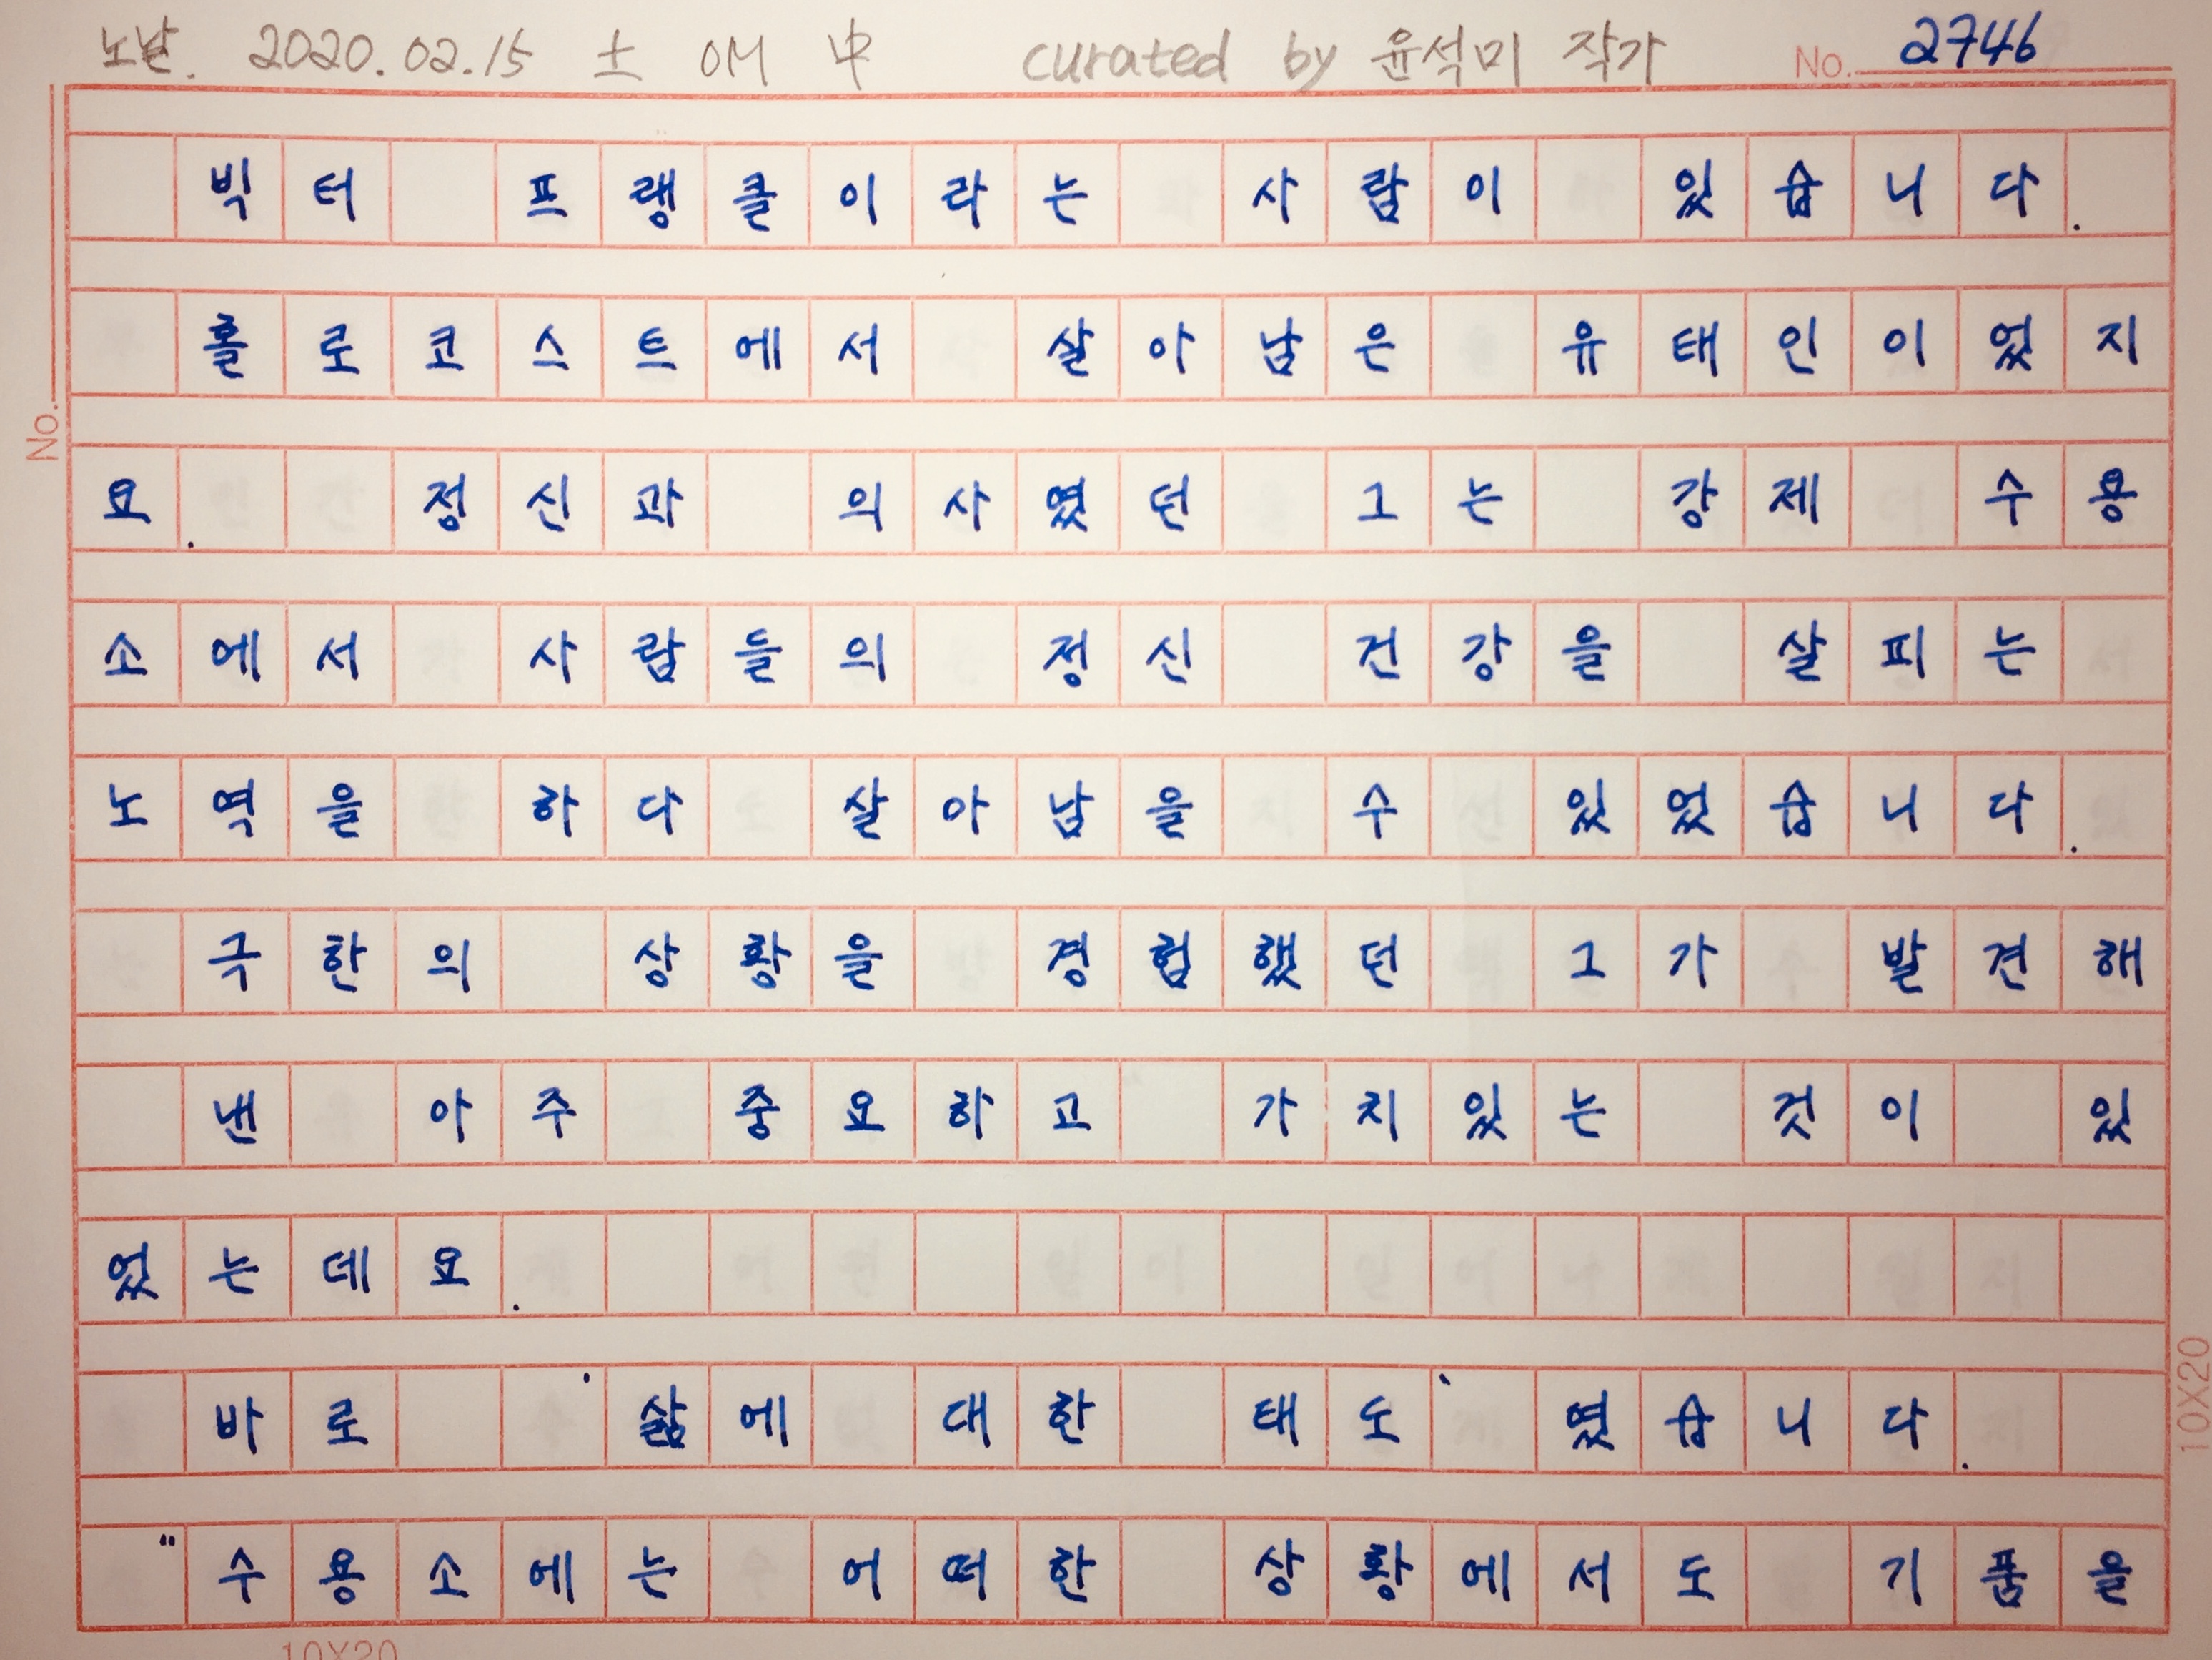 노날. 2020.02.15 土 OM 中 curated by 윤석미 작가 No. 2746
빅터 프랭클이라는 사람이 있습니다.
홀로코스트에서 살아남은 유태인이었지
No.
요. 정신과 의사였던 그는 강제 수용
소에서 사람들의 정신 건강을 살피는
노역을 하다 살아남을 수 있었습니다.
극한의 상황을 경험했던 그가 발견해
낸 아주 중요하고 가치있는 것이 있
었는데요.
바로 '삶에 대한 태도'였습니다.
10X20
"수용소에는 어떠한 상황에서도 기품을
10X20